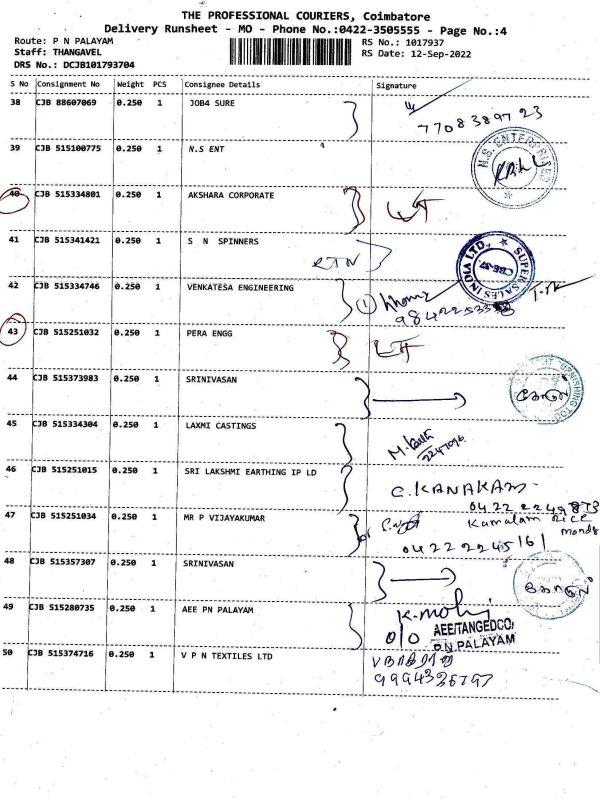 THE PROFESSIONAL COURIERS, Coimbatore
Delivery Runsheet - MO - Phone No.:0422-3505555 - Page No.:4
Route: P N PALAYAM
Staff: THANGAVEL
DRS No.: DCJB101793704
RS No.: 1017937
RS Date: 12-Sep-2022
S No Consignment No Weight PCS Consignee Details Signature
38 CJB 88607069 0.250 1 JOB4 SURE
7708389723
39 CJB 515100775 0.250 1 N.S ENT
N.S. ENTERPRISES
40 CJB 515334801 0.250 1 AKSHARA CORPORATE
41 CJB 515341421 0.250 1 S N SPINNERS
RTN
SUPER SALES INDIA LTD.
CBE-37.
42 CJB 515334746 0.250 1 VENKATESA ENGINEERING
43 CJB 515251032 0.250 1 PERA ENGG
44 CJB 515373983 0.250 1 SRINIVASAN
45 CJB 515334304 0.250 1 LAXMI CASTINGS
2247096
46 CJB 515251015 0.250 1 SRI LAKSHMI EARTHING IP LD
C.KANAKAM
0422 2249873
47 CJB 515251034 0.250 1 MR P VIJAYAKUMAR
Kamalam Rice
mandy
0422 2245161
48 CJB 515357307 0.250 1 SRINIVASAN
49 CJB 515280735 0.250 1 AEE PN PALAYAM
K.mohi
O/O AEE/TANGEDCO/
P.N.PALAYAM
50 CJB 515374716 0.250 1 V P N TEXTILES LTD